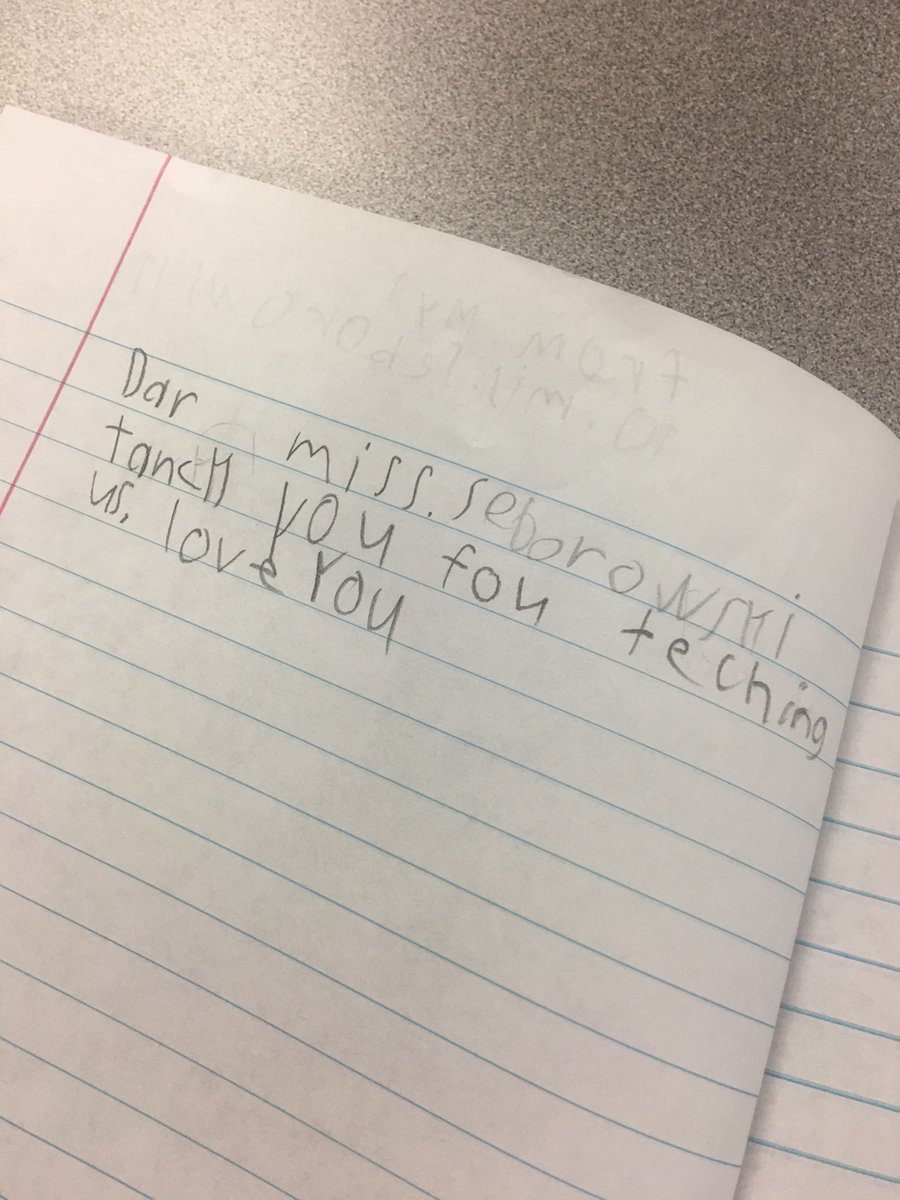 Dar miss. Seborowski
tanck you fou teching
us, love You